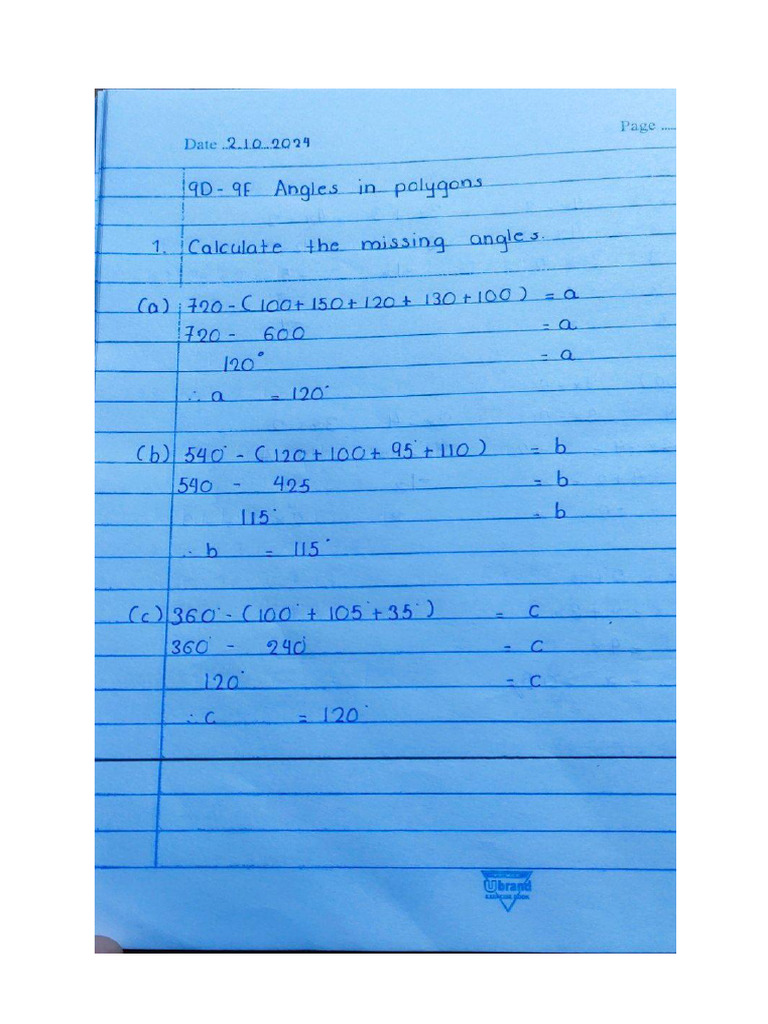 Page .....
Date ..2.10..2024
9D - 9E Angles in polygons
1. Calculate the missing angles.
(a) 720 - (100 + 150 + 120 + 130 + 100) = a
720 - 600 = a
120° = a
∴ a = 120°
(b) 540° - (120 + 100 + 95° + 110) = b
540 - 425 = b
115° = b
∴ b = 115°
(c) 360° - (100° + 105° + 35°) = c
360° - 240° = c
120° = c
∴ c = 120°
Ubrand
EXERCISE BOOK